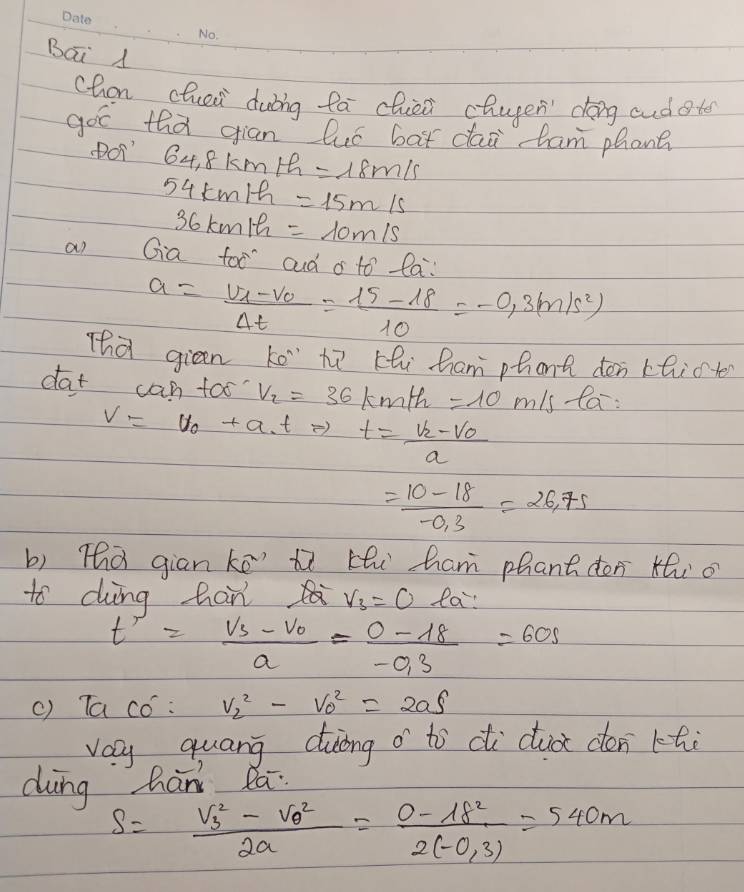 Date
No.
Bài 1
Chọn chiều dương là chiều chuyển động của ô tô
gốc thời gian lúc bắt đầu hãm phanh
Đổi 64,8 km/h = 18m/s
54km/h = 15m/s
36km/h = 10m/s
a) Gia tốc của ô tô là:
a = \frac{v_1 - v_0}{Δt} = \frac{15 - 18}{10} = -0,3(m/s²)
Thời gian kể từ khi hãm phanh đến khi ô tô
đạt vận tốc v₂ = 36km/h = 10 m/s là:
v = v₀ + a.t ⇒ t = \frac{v_2 - v_0}{a}
= \frac{10 - 18}{-0,3} = 26,7s
b) Thời gian kể từ khi hãm phanh đến khi ô
tô dừng hẳn v₃ = 0 là:
t' = \frac{v_3 - v_0}{a} = \frac{0 - 18}{-0,3} = 60s
c) Ta có: v₂² - v₀² = 2aS
Vậy quãng đường ô tô đi được đến khi
dừng hẳn là:
S = \frac{v_3^2 - v_0^2}{2a} = \frac{0 - 18^2}{2(-0,3)} = 540m